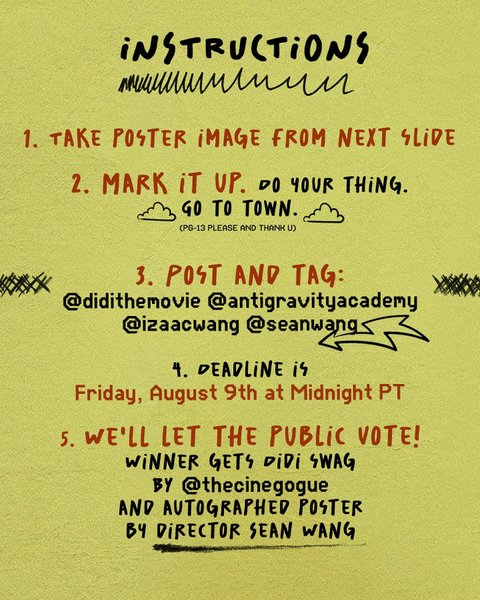 iNSTRUCTiONS
1. TAKE POSTER iMAGE FROM NEXT SLiDE
2. MARK iT UP. DO YOUR THiNG.
GO TO TOWN.
(PG-13 PLEASE AND THANK U)
3. POST AND TAG:
@didithemovie @antigravityacademy
@izaacwang @seanwang
4. DEADLiNE iS
Friday, August 9th at Midnight PT
5. WE'LL LET THE PUBLiC VOTE!
WiNNER GETS DiDi SWAG
BY @thecinegogue
AND AUTOGRAPHED POSTER
BY DiRECTOR SEAN WANG